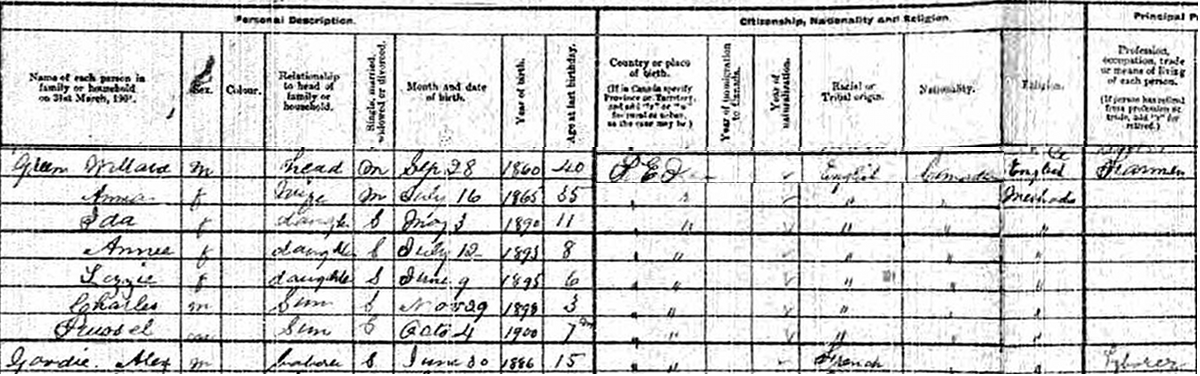 Personal Description. Citizenship, Nationality and Religion. Principal
Name of each person in family or household on 31st March, 1901. Sex. Colour. Relationship to head of family or household. Single, married, widowed or divorced. Month and date of birth. Year of birth. Age at last birthday. Country or place of birth. (If in Canada specify Province or Territory, and add "r" or "u" for rural or urban, as the case may be.) Year of immigration to Canada. Year of naturalization. Racial or Tribal origin. Nationality. Religion. Profession, occupation, trade or means of living of each person. (If person has retired from profession or trade, add "r" for retired.)
Green Willard m head m Sep 28 1860 40 P E I English Canada English Farmer
f Wife m July 16 1865 35 " " Methods
Ida f daugh S May 3 1890 11 " " " " "
Annie f daughte S July 12 1893 8 " " " " "
Lizzie f daughte S June 9 1895 6 " " " "
Charles m Sun S Nov 29 1898 3 " " " " "
Russel m Sun S Octo 4 1900 7m " " " " "
Alex m S June 30 1886 15 " " French " " Laborer